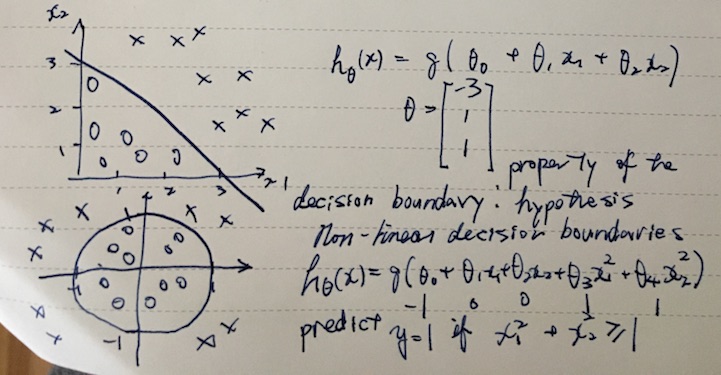 x₂
3
2
1
1 2 3 x1
hθ(x) = g(θ₀ + θ₁x₁ + θ₂x₂)
θ = [-3
1
1]
property of the
decision boundary: hypothesis
Non-linear decision boundaries
hθ(x) = g(θ₀ + θ₁x₁ + θ₂x₂ + θ₃x₁² + θ₄x₂²)
-1 0 0 1 1
predict y=1 if x₁² + x₂² ≥ 1
1
-1